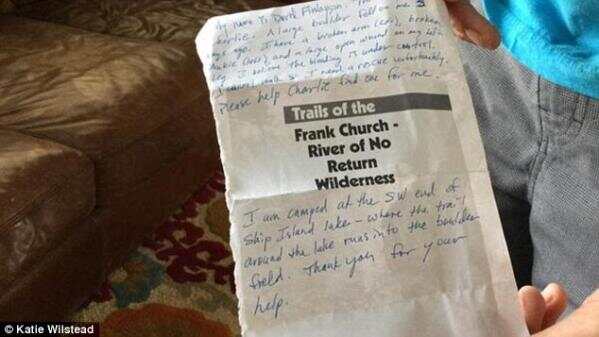 My name is David Finlayson. I'm
Charlie. A large boulder fell on me 3
days ago. I have a broken arm (left), broken
Ankle (left) and a large open wound on my left
leg. I believe the bleeding is under control.
I cannot walk so I need a rescue unfortunately.
Please help Charlie find one for me.
Trails of the
Frank Church -
River of No
Return
Wilderness
I am camped at the SW end of
Ship Island lake - where the trail
around the lake runs into the boulder
field. Thank you for your
help.
© Katie Wilstead